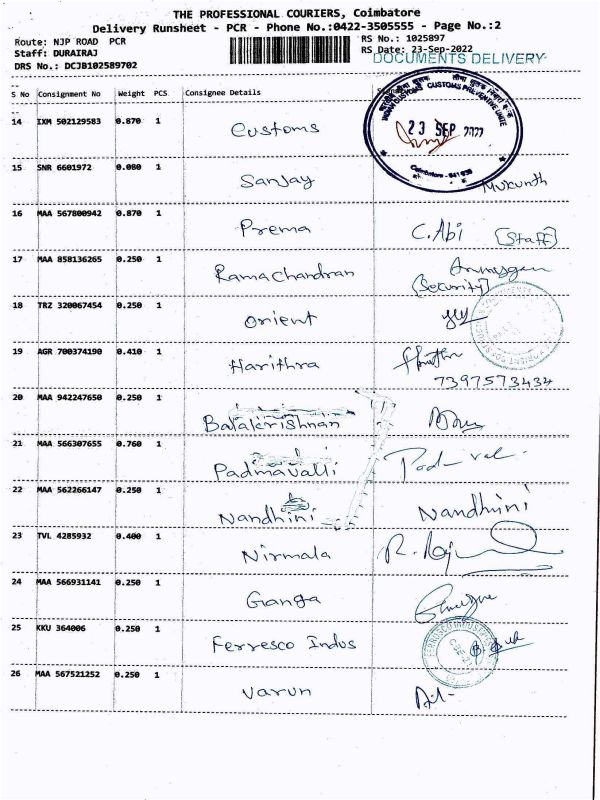 THE PROFESSIONAL COURIERS, Coimbatore
Delivery Runsheet - PCR - Phone No.:0422-3505555 - Page No.:2
Route: NJP ROAD PCR
RS No.: 1025897
Staff: DURAIRAJ
RS Date: 23-Sep-2022
DRS No.: DCJB102589702
DOCUMENTS DELIVERY
S No Consignment No Weight PCS Consignee Details
INDIAN CUSTOMS CUSTOMS PREVENTIVE UNIT
23 SEP 2022
Coimbatore - 641 018
14 IXM 502129583 0.870 1 Customs
15 SNR 6601972 0.080 1 Sanjay Mukunth
16 MAA 567800942 0.870 1 Prema C.Abi [Staff]
17 MAA 858136265 0.250 1 Ramachandran [Security]
18 TRZ 320067454 0.250 1 Orient
19 AGR 700374190 0.410 1 Harithra
7397573434
20 MAA 942247650 0.250 1 Balakrishnan
21 MAA 566307655 0.760 1 Padmavalli
22 MAA 562266147 0.250 1 Nandhini Nandhini
23 TVL 4285932 0.400 1 Nirmala
24 MAA 566931141 0.250 1 Ganga
25 KKU 364006 0.250 1 Ferresco Indus
26 MAA 567521252 0.250 1 Varun